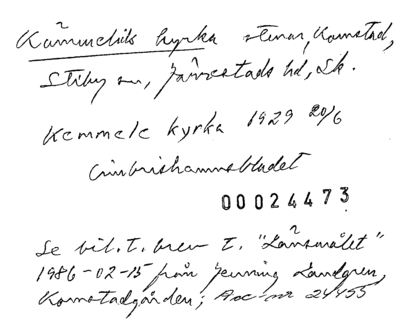 Kämmekils kyrka stenar, Komstad,
Stiby sn, Järrestads hd, Sk.
Kemmele kyrka 1929 20/6
Cimbrishamnsbladet
00024473
Se bil. t. brev t. "Länsmålet"
1986-02-15 från Henning Landgren,
Komstadgården; Acc-nr 24455